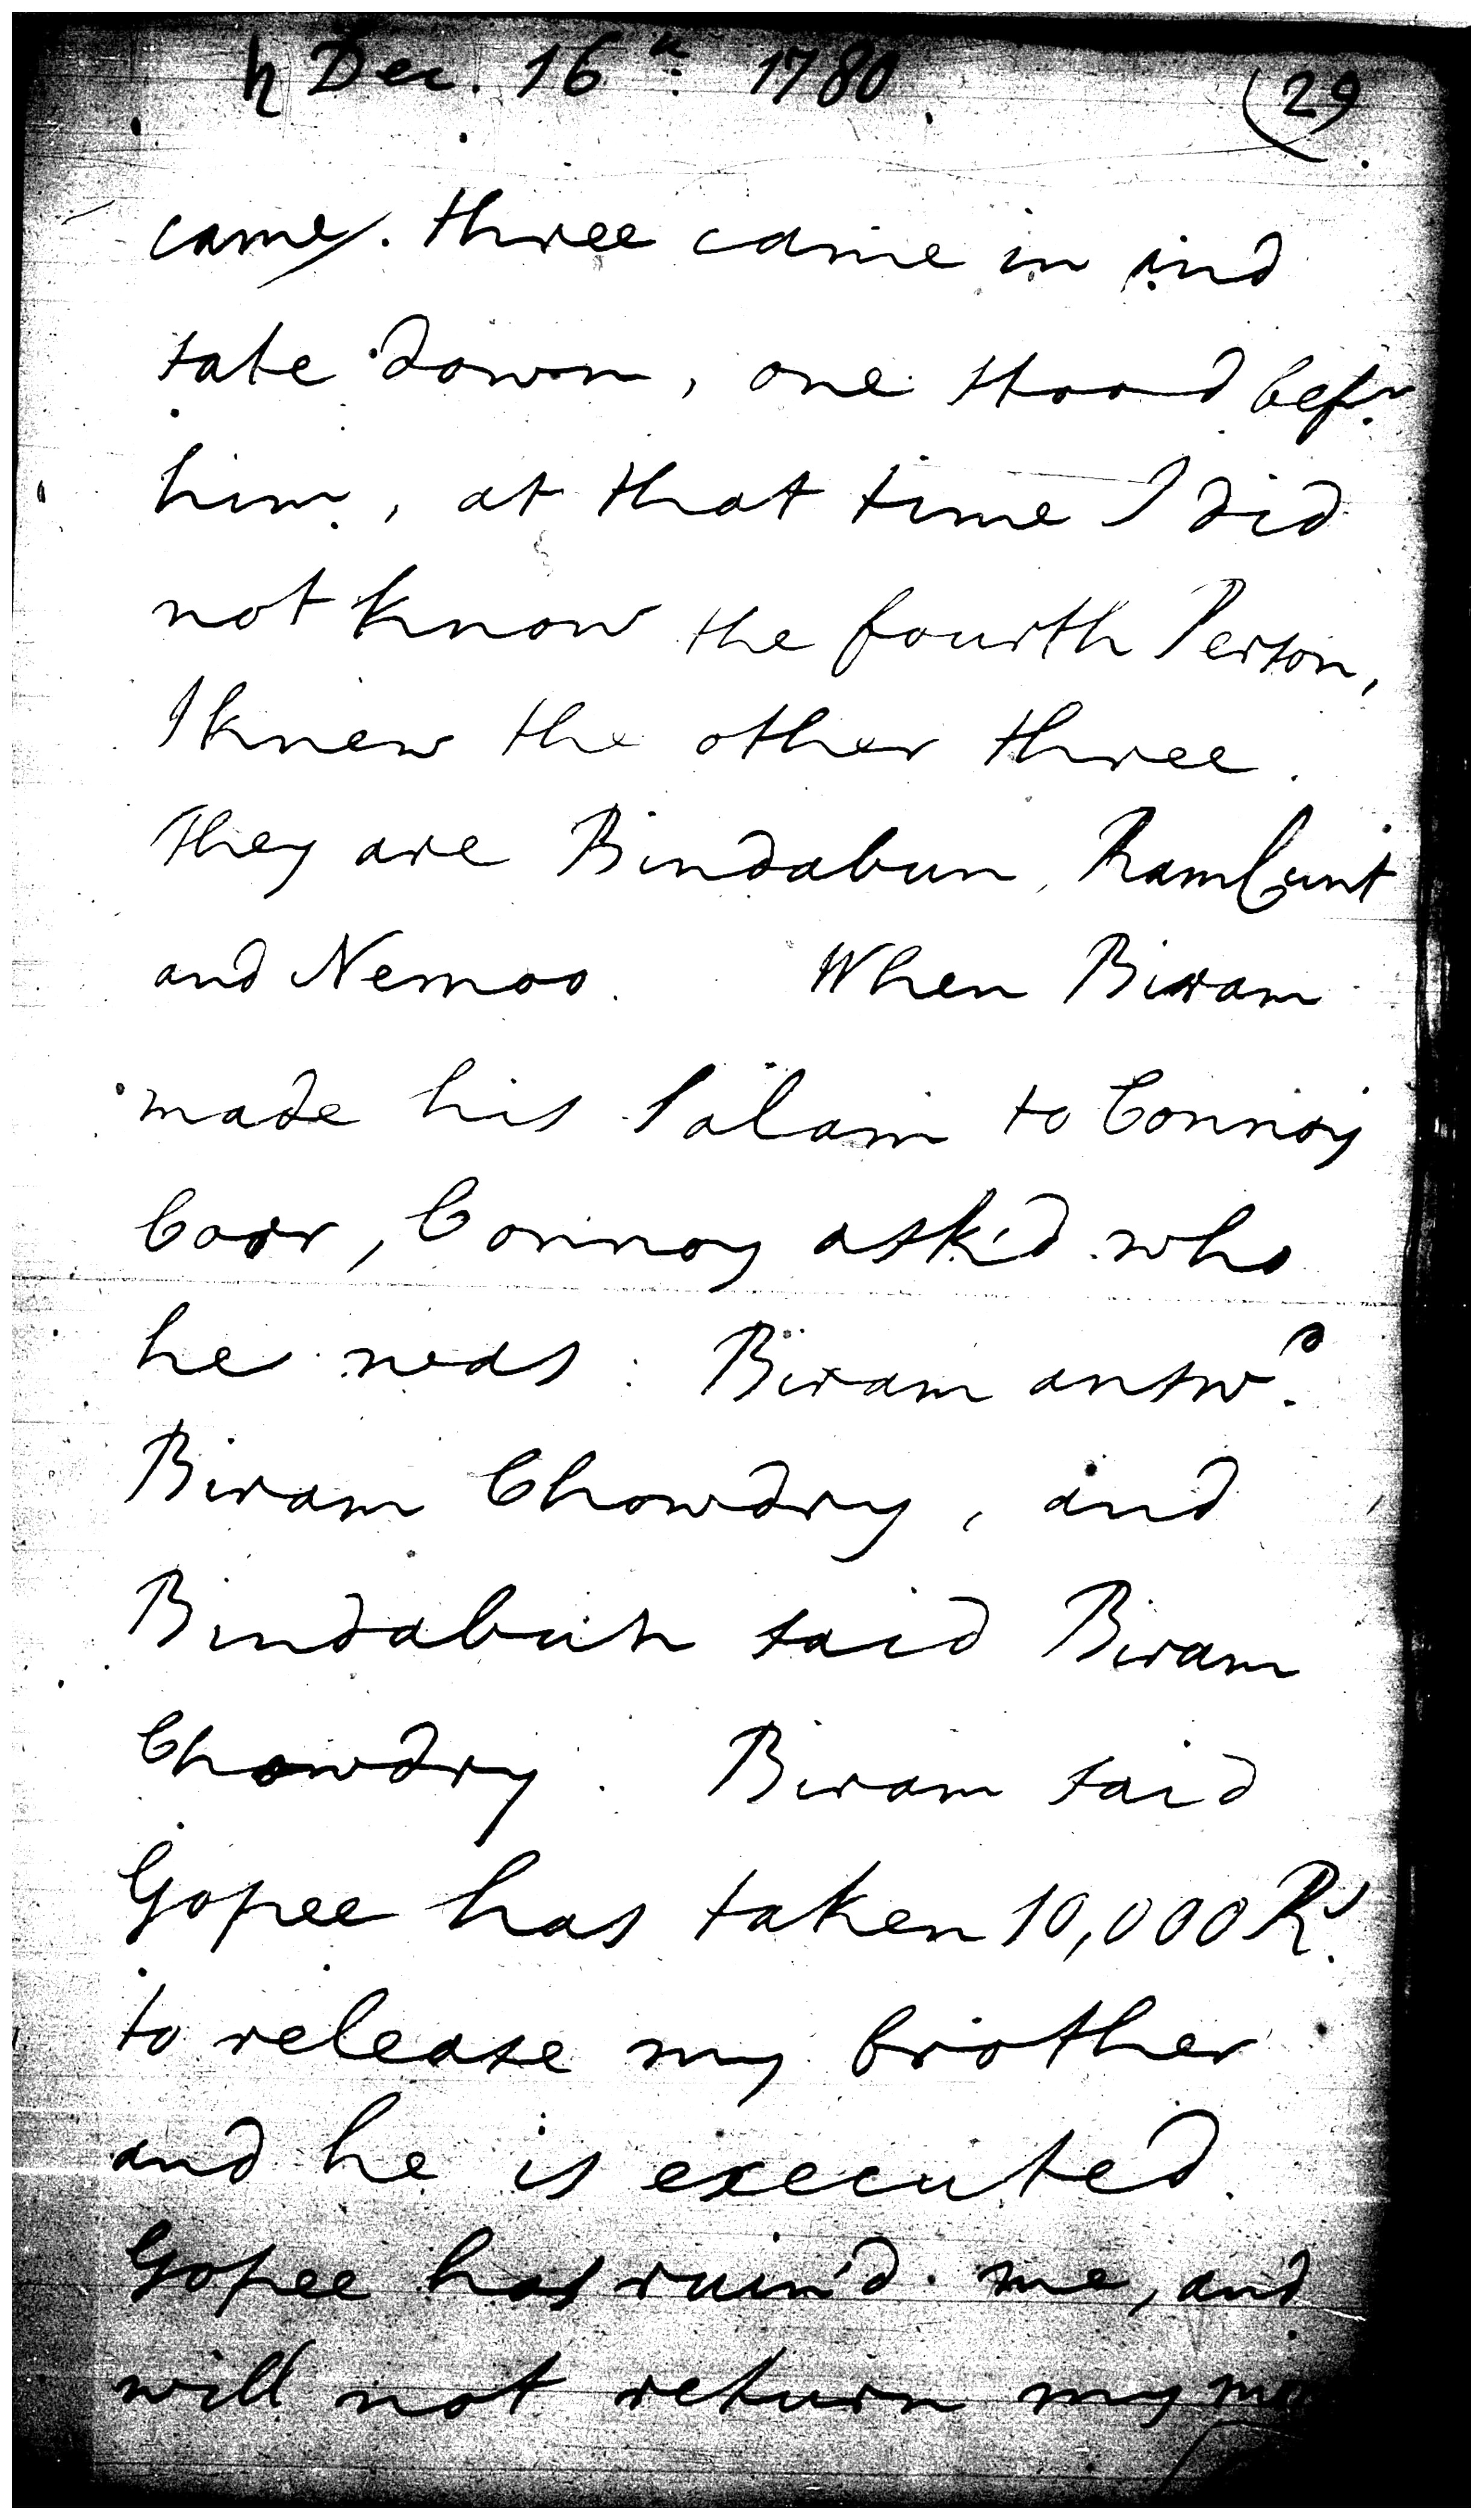 ♄ Dec. 16th. 1780 (29
came. three came in and
sate down, one stood befr.
him, at that time I did
not know the fourth Person,
I knew the other three.
They are Bindabun, RamCunt
and Nemoo. When Biram
made his Salam to Connoy
Corr, Connoy ask'd who
he was: Biram answd.
Biram Chowdry, and
Bindabun said Biram
Chowdry. Biram said
Gopee has taken 10,000 Rs.
to release my brother
and he is executed.
Gopee has ruin'd me, and
will not return my